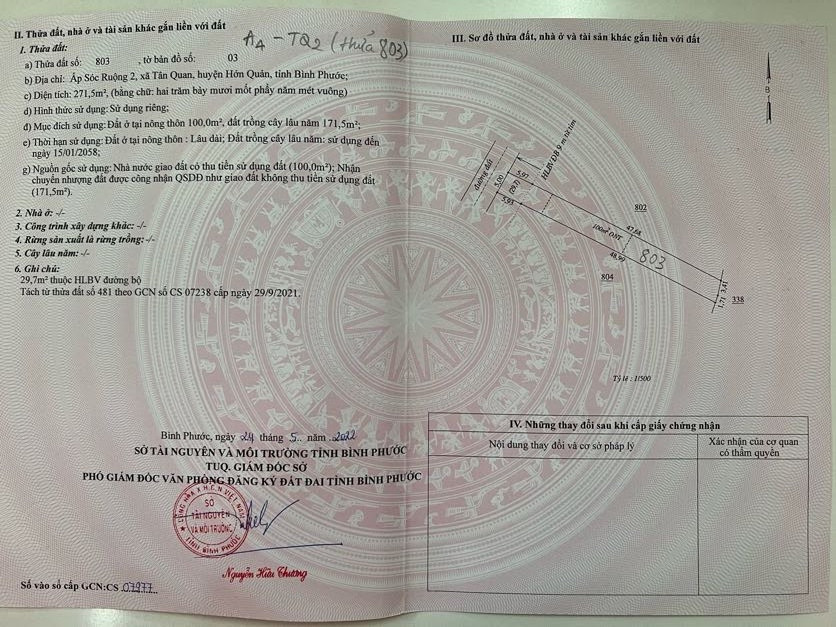 II. Thửa đất, nhà ở và tài sản khác gắn liền với đất
A4 - TQ2 (thửa 803)
1. Thửa đất:
a) Thửa đất số: 803 , tờ bản đồ số: 03
b) Địa chỉ: Ấp Sóc Ruộng 2, xã Tân Quan, huyện Hớn Quản, tỉnh Bình Phước;
c) Diện tích: 271,5m², (bằng chữ: hai trăm bảy mươi mốt phẩy năm mét vuông)
d) Hình thức sử dụng: Sử dụng riêng;
đ) Mục đích sử dụng: Đất ở tại nông thôn 100,0m², đất trồng cây lâu năm 171,5m²;
e) Thời hạn sử dụng: Đất ở tại nông thôn : Lâu dài; Đất trồng cây lâu năm: sử dụng đến
ngày 15/01/2058;
g) Nguồn gốc sử dụng: Nhà nước giao đất có thu tiền sử dụng đất (100,0m²); Nhận
chuyển nhượng đất được công nhận QSDĐ như giao đất không thu tiền sử dụng đất
(171,5m²).
2. Nhà ở: -/-
3. Công trình xây dựng khác: -/-
4. Rừng sản xuất là rừng trồng: -/-
5. Cây lâu năm: -/-
6. Ghi chú:
29,7m² thuộc HLBV đường bộ
Tách từ thửa đất số 481 theo GCN số CS 07238 cấp ngày 29/9/2021.
Bình Phước, ngày 24 tháng 5.. năm ..2022
SỞ TÀI NGUYÊN VÀ MÔI TRƯỜNG TỈNH BÌNH PHƯỚC
TUQ. GIÁM ĐỐC SỞ
PHÓ GIÁM ĐỐC VĂN PHÒNG ĐĂNG KÝ ĐẤT ĐAI TỈNH BÌNH PHƯỚC
CỘNG HÒA X.H.C.N VIỆT NAM
SỞ
TÀI NGUYÊN
VÀ MÔI TRƯỜNG
TỈNH BÌNH PHƯỚC
Nguyễn Hữu Thương
Số vào sổ cấp GCN:CS 07977..
III. Sơ đồ thửa đất, nhà ở và tài sản khác gắn liền với đất
B
đường đất
HLBVĐB 9 m từ tim
5,00
5,97
(29,7)
5,93
802
47,68
100m² ONT
48,99
803
804
1,71
3,41
338
Tỷ lệ : 1/500
IV. Những thay đổi sau khi cấp giấy chứng nhận
Nội dung thay đổi và cơ sở pháp lý
Xác nhận của cơ quan
có thẩm quyền